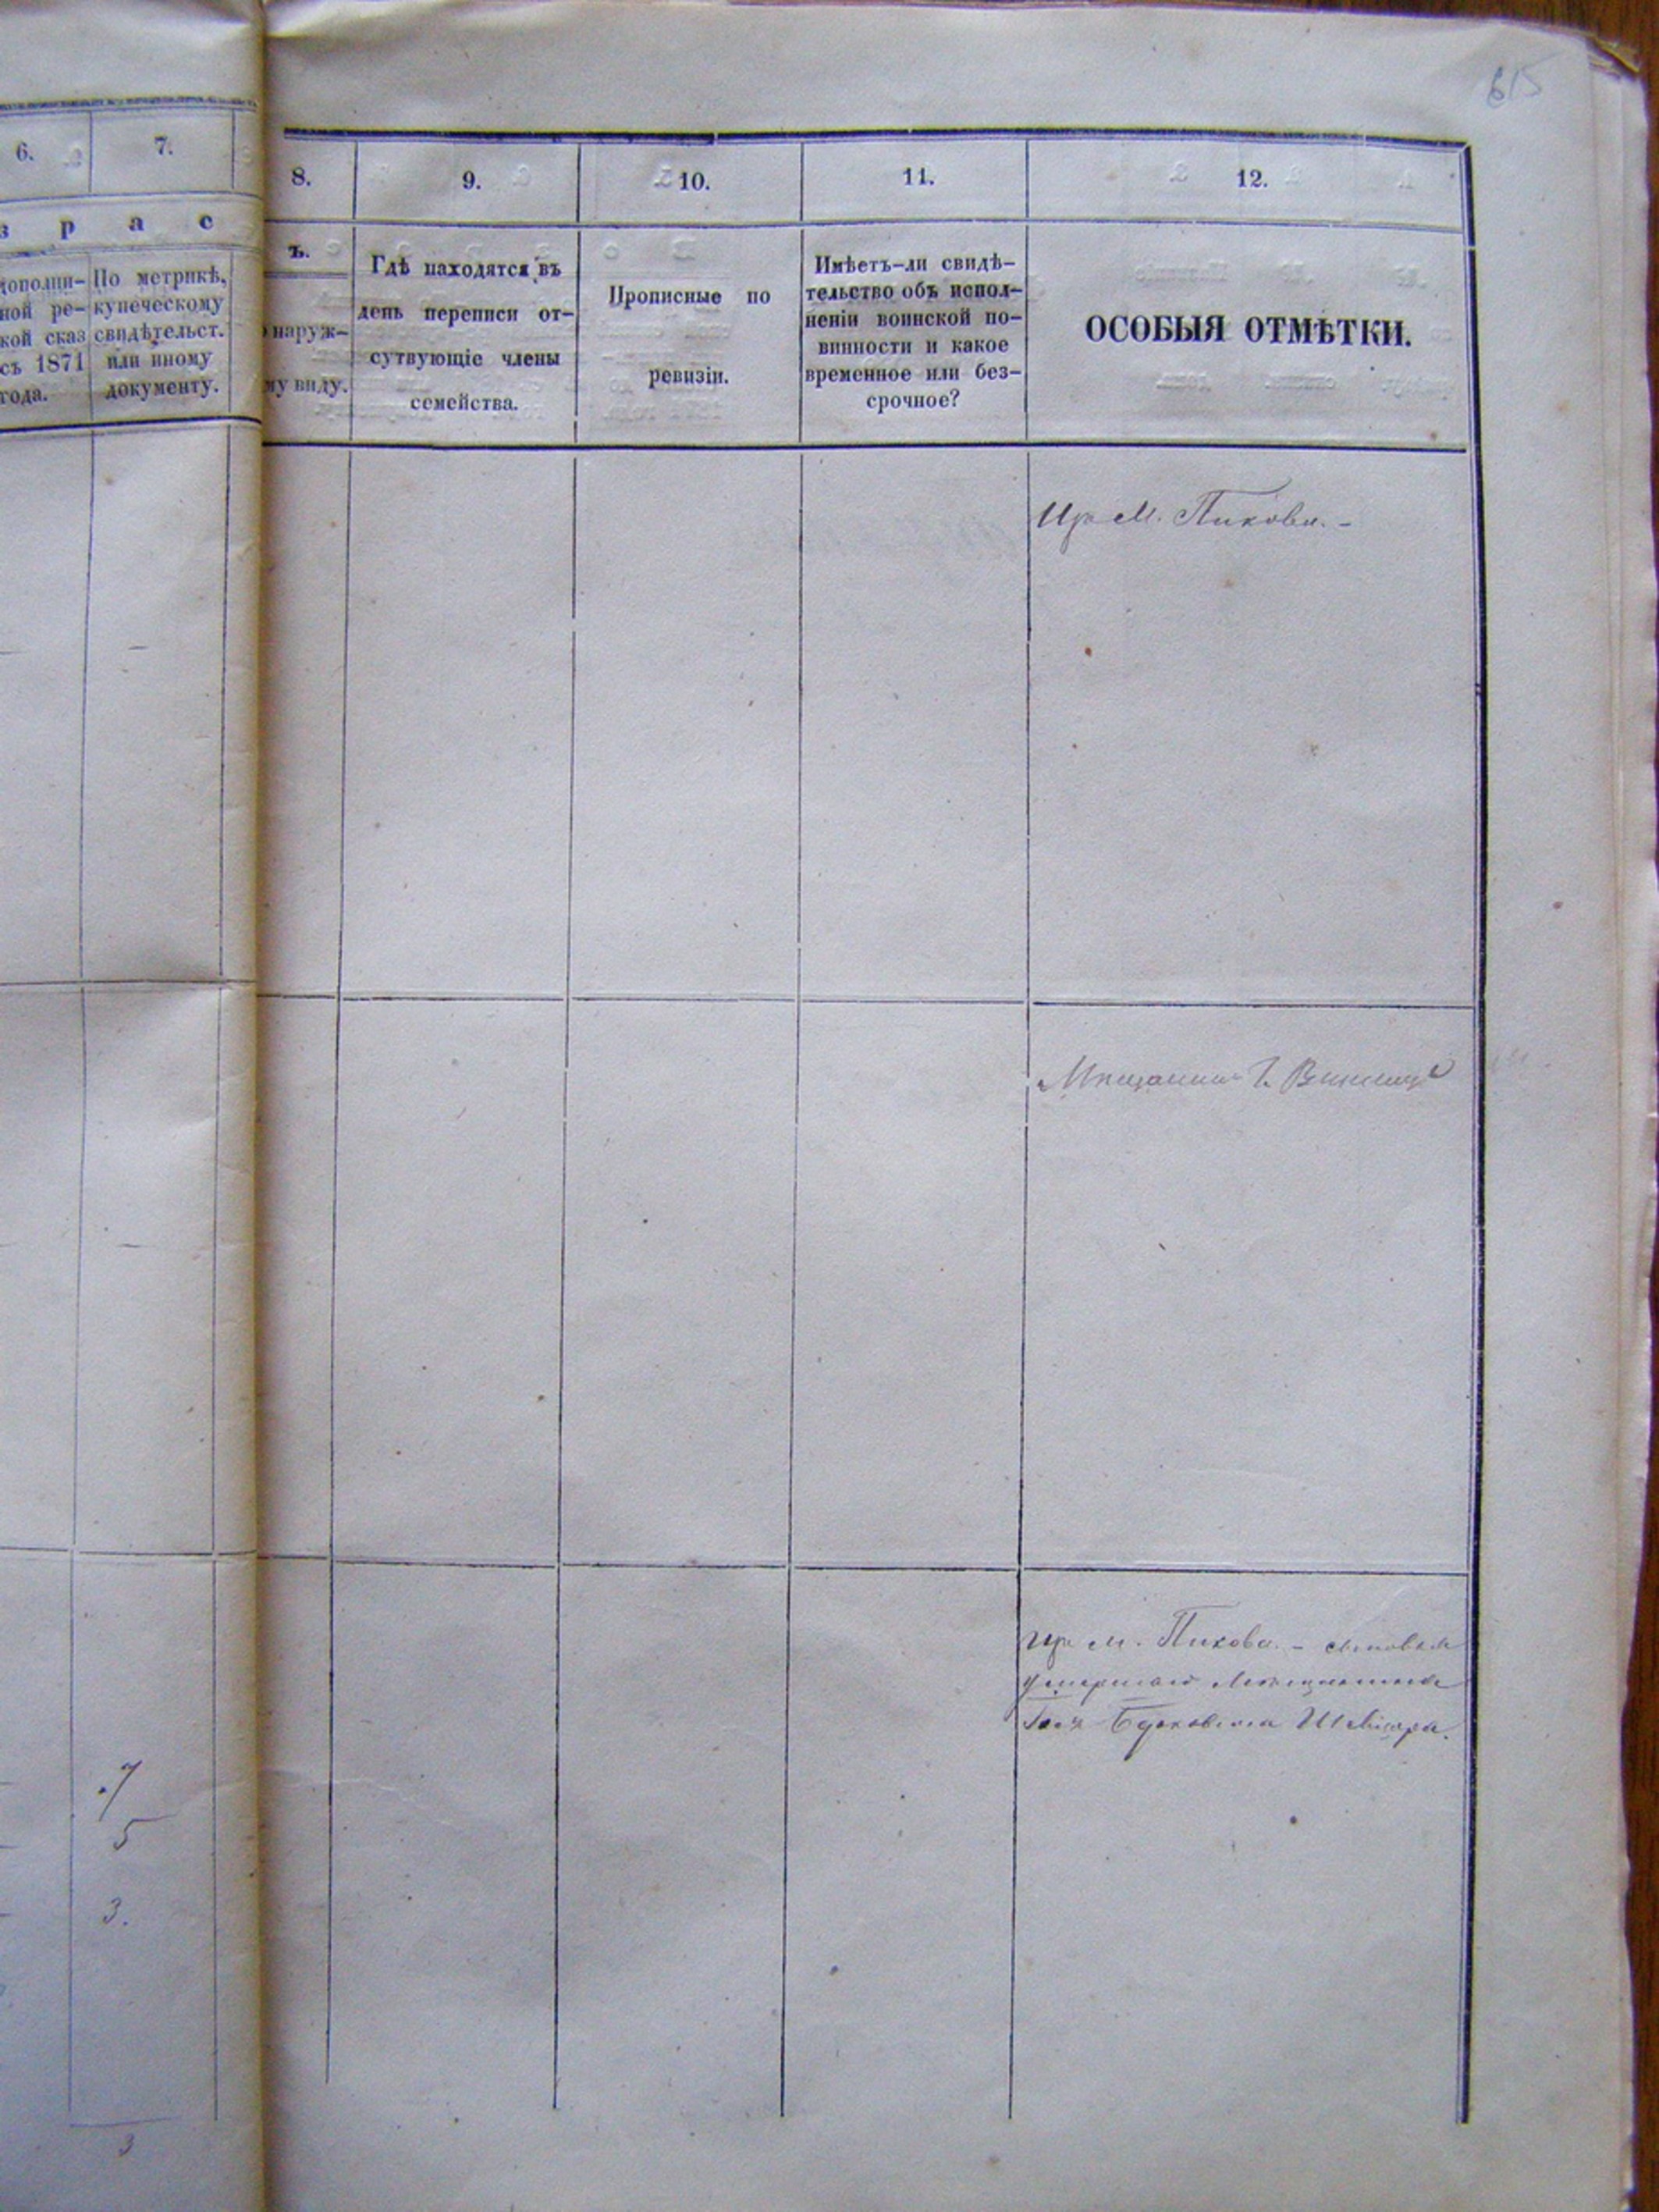 615
6.
7.
з р а с
дополни-
ной ре-
кой сказ
съ 1871
года.
По метрикѣ,
купеческому
свидѣтельст.
или иному
документу.
7
5
3.
3
8.
9.
10.
11.
12.
ъ.
наруж-
му виду.
Гдѣ находятся въ
день переписи от-
сутвующіе члены
семейства.
Прописные по
ревизіи.
Имѣетъ-ли свидѣ-
тельство объ испол-
неніи воинской по-
винности и какое
временное или без-
срочное?
ОСОБЫЯ ОТМѢТКИ.
Изъ М. Пикова. -
Мѣщанинъ г. Винницы
Изъ м. Пикова. - сыновья
умершаго мѣщанина
Берковича Швицера.